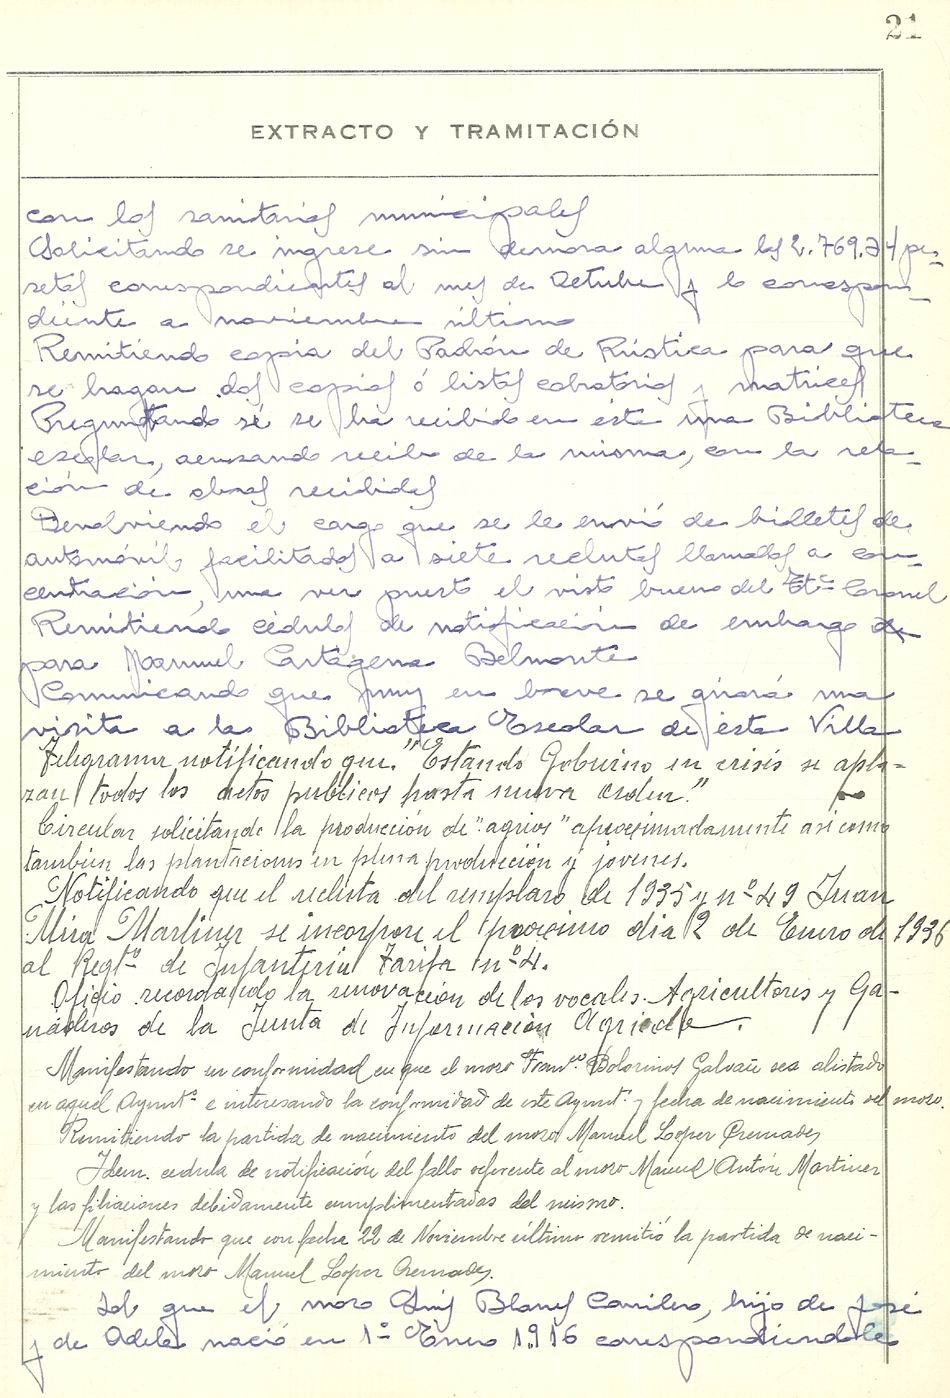 21
EXTRACTO Y TRAMITACIÓN
con los sanitarios municipales
Solicitando se ingrese sin demora alguna las 2.769.34 pe-
setas correspondientes al mes de Octubre y lo correspon-
diente a noviembre último
Remitiendo copia del Padrón de Rústica para que
se hagan dos copias ó listas cobratorias y matrices
Preguntando si se ha recibido en ésta una Biblioteca
escolar, acusando recibo de la misma, con la rela-
ción de obras recibidas
Devolviendo el cargo que se le envió de billetes de
automóvil, facilitados a siete reclutas llamados a con-
centración, una vez puesto el visto bueno del Tte. Coronel
Remitiendo cédulas de notificación de embargo
para Manuel Cartagena Belmonte
Comunicando que muy en breve se girará una
visita a la Biblioteca Escolar de ésta Villa
Telegrama notificando que. "Estando Gobierno en crisis se apla-
zan todos los actos publicos hasta nueva orden."
Circular solicitando la produccion de "agrios" aproximadamente asi como
tambien las plantaciones en plena producción y jovenes.
Notificando que el recluta del remplazo de 1935 y nº 49 Juan
Mira Martinez se incorpore el proximo dia 2 de Enero de 1936
al Regtº de Infanteria Tarifa nº 4.
Oficio recordando la renovación de los vocales Agricultores y Ga-
naderos de la Junta de Información Agricola.
Manifestando su conformidad en que el mozo Franco. Bolorinos Galvañ sea alistado
en aquel Ayuntº e interesando la conformidad de este Ayuntº y fecha de nacimiento del mozo.
Remitiendo la partida de nacimiento del mozo Manuel Lopez Cremades
Idem. cedula de notificación del fallo referente al mozo Manuel Antón Martinez
y las filiaciones debidamente cumplimentadas del mismo.
Manifestando que con fecha 22 de Noviembre último remitió la partida de naci-
miento del mozo Manuel Lopez Cremades.
Id que el mozo Luis Blanes Carrilero, hijo de José
y de Adela nació en 1º Enero 1.916 correspondiendole